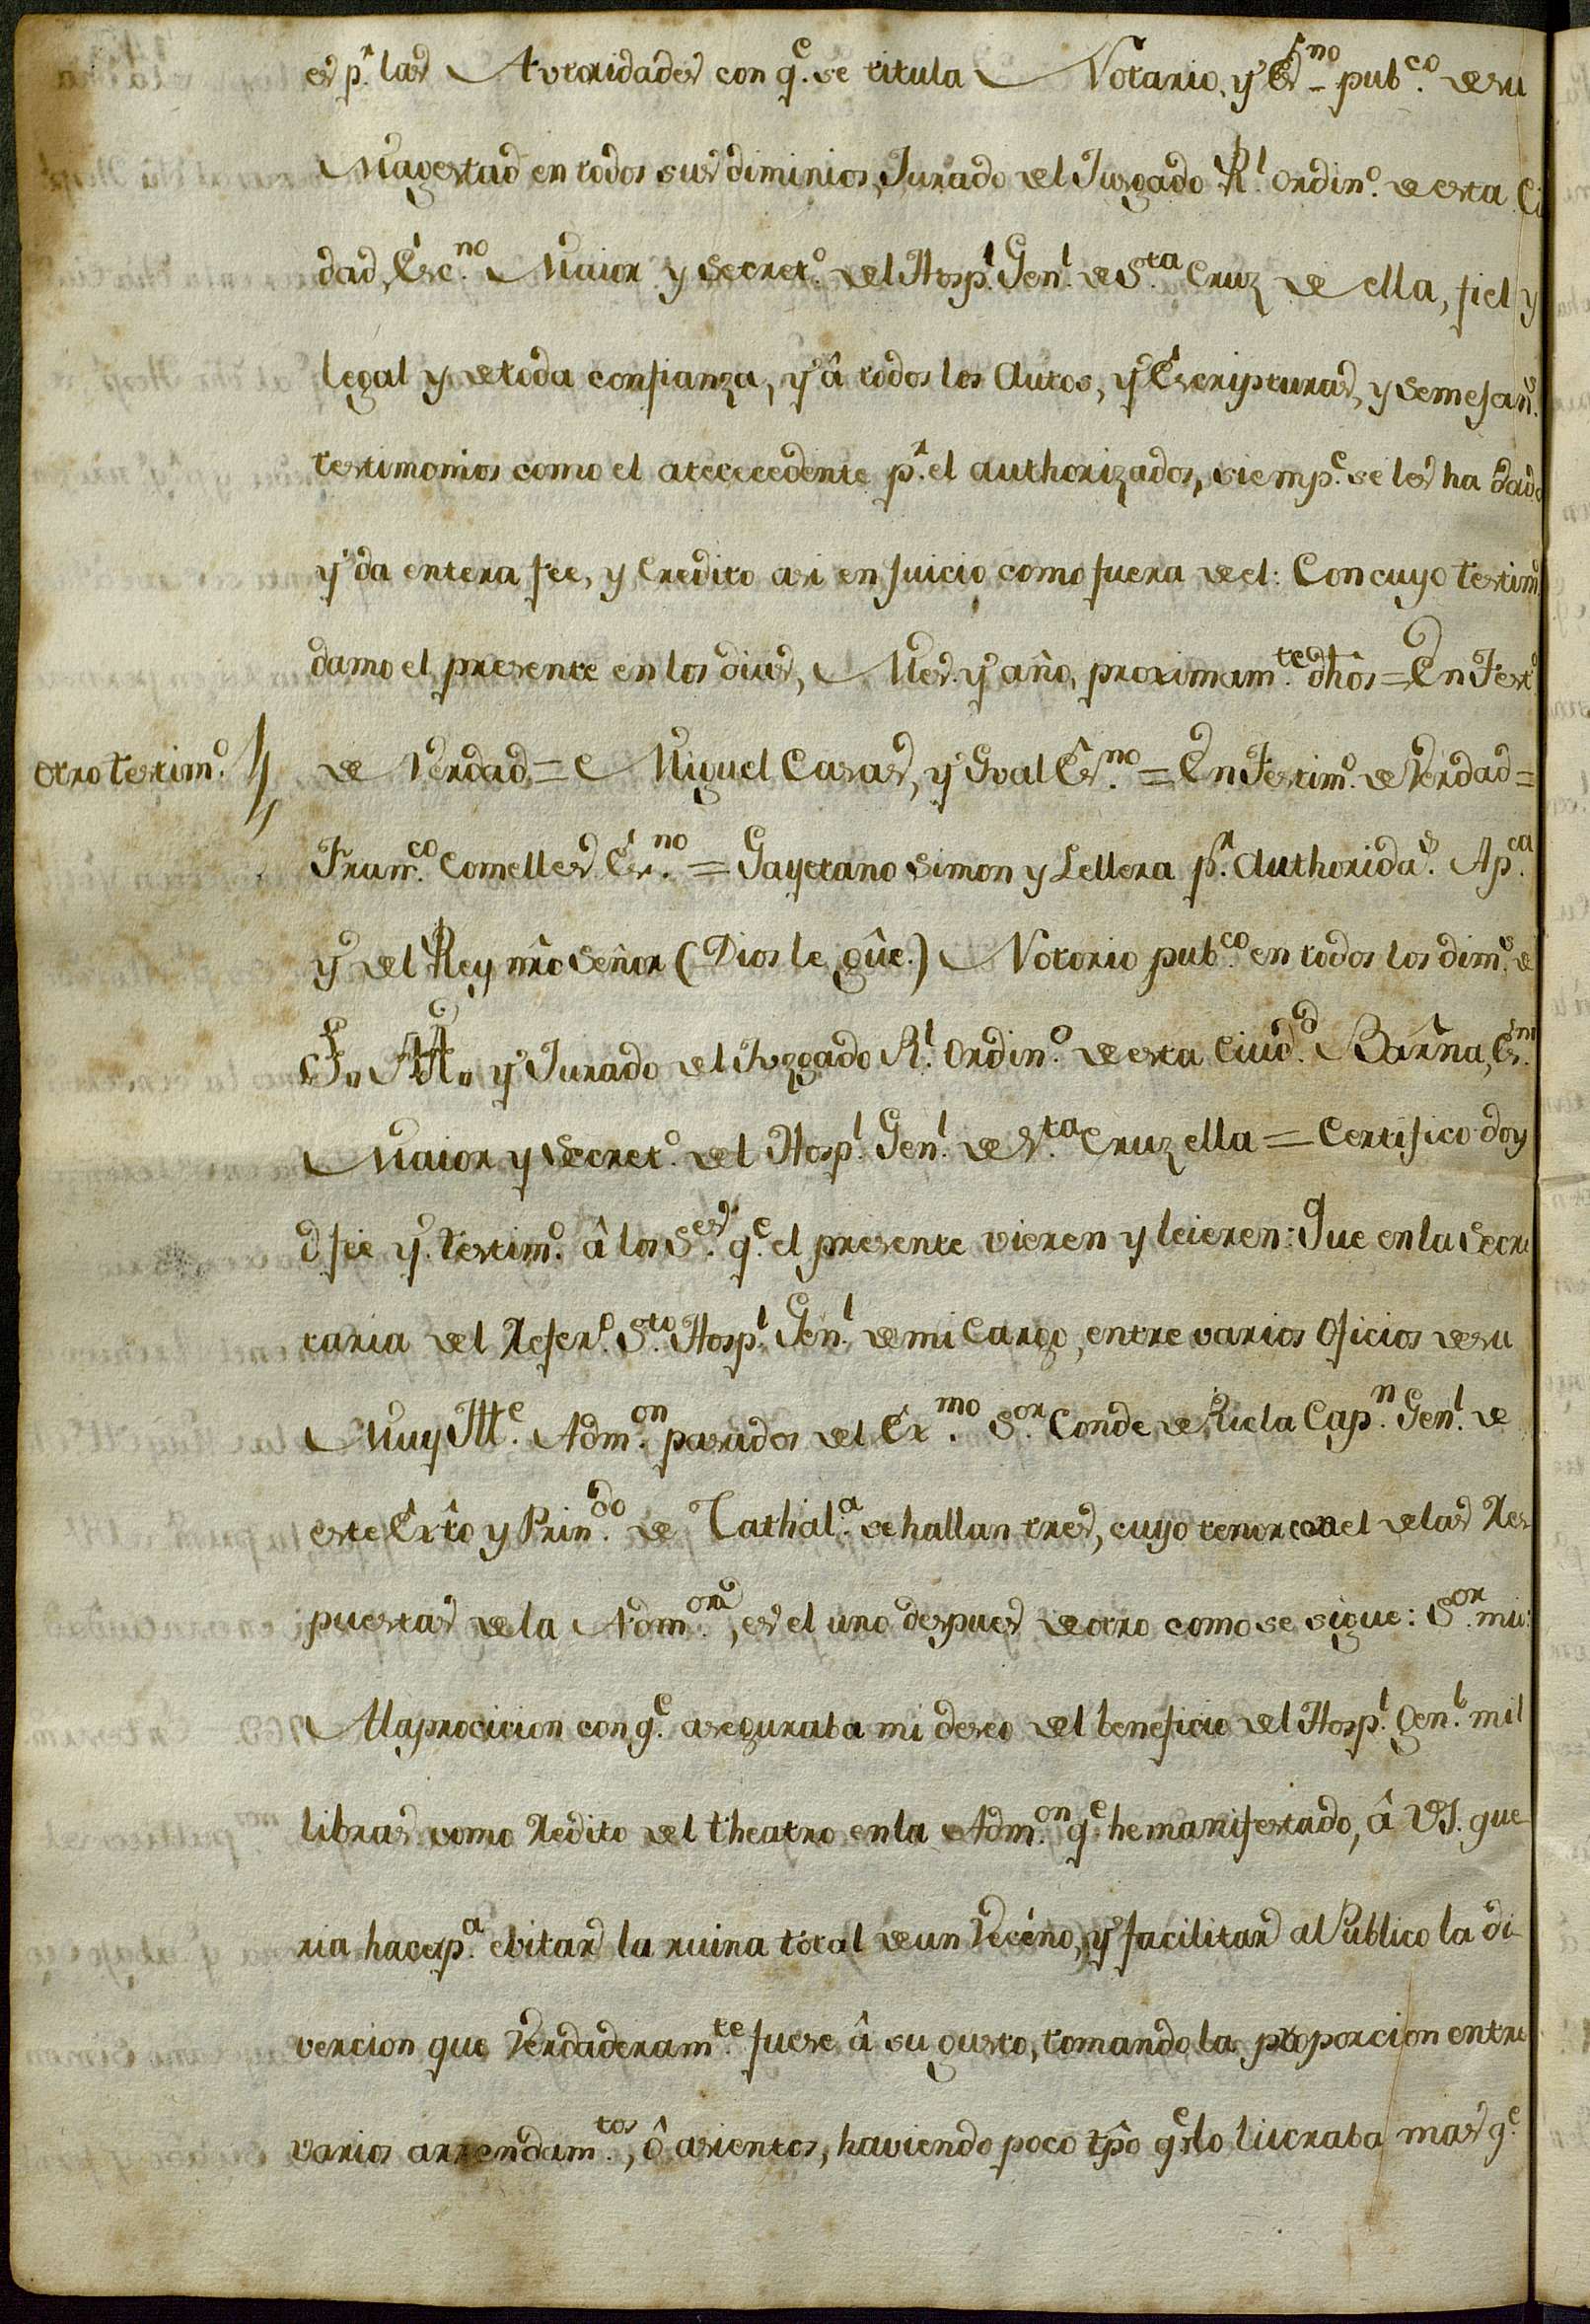 es p.r las Autoridades con q.e se titula Notario, y Es.no pub.co de su
Magestad en todos sus diminios, Jurado del Jusgado R.l Ordin.o de esta Ciu
dad, Esc.no Maior y Secret.o del Hosp.l Gen.l de S.ta Cruz de ella, fiel y
legal y de toda confianza, y â todos los Autos, y Escripturas, y Semejan.s
testimonios como el atececedente p.r el authorizados, siemp.e se les ha dado
y da entera fee, y Credito asi en Juicio como fuera de el: Con cuyo testim.o
damo el presente en los dias, Mes y año, proximam.te dhôs = En Test.o
otro testim.o de Verdad = Miguel Casas, y Gval Es.no = En Testim.o de Verdad =
Fran.co Comelles Es.no = Gayetano Simon y Lellera p.r Authorida.s Ap.ca
y del Rey nrô Señor (Dios le gûe.) Notorio pub.co en todos los dim.s de
S. M. y Jurado del Juzgado R.l Ordin.o de esta Ciud.d Barña, Es.no
Maior y Secret.o del Hosp.l Gen.l de S.ta Cruz ella = Certifico doy
d feè y testim.o â los S.es q.e el presente vieren y leieren: Que en la Secre
taria del Refer.o S.to Hosp.l Gen.l de mi Cargo, entre varios Oficios de su
Muy Ill.e Adm.on pasados del Ex.mo S.or Conde de Ricla Cap.n Gen.l de
este Exto y Prin.do de Cathal.a se hallan tres, cuyo tenor con el de las Res
puestas de la Adm.on, es el uno despues de otro como se sigue: S.or mio:
Alaprocicion con q.e aseguraba mi deseo del beneficio del Hosp.l Gen.l mil
libras como Redito del theatro en la Adm.on q.e he manifestado, â VS. que
ria hacer p.a ebitar la ruina total de un Vecéno, y facilitar al Publico la di
vercion que Verdaderam.te fuese â su gusto, tomando la proporcion entre
varios arrendam.tos, ô asientos, haviendo poco tpô q.e lo lucraba mas q.e